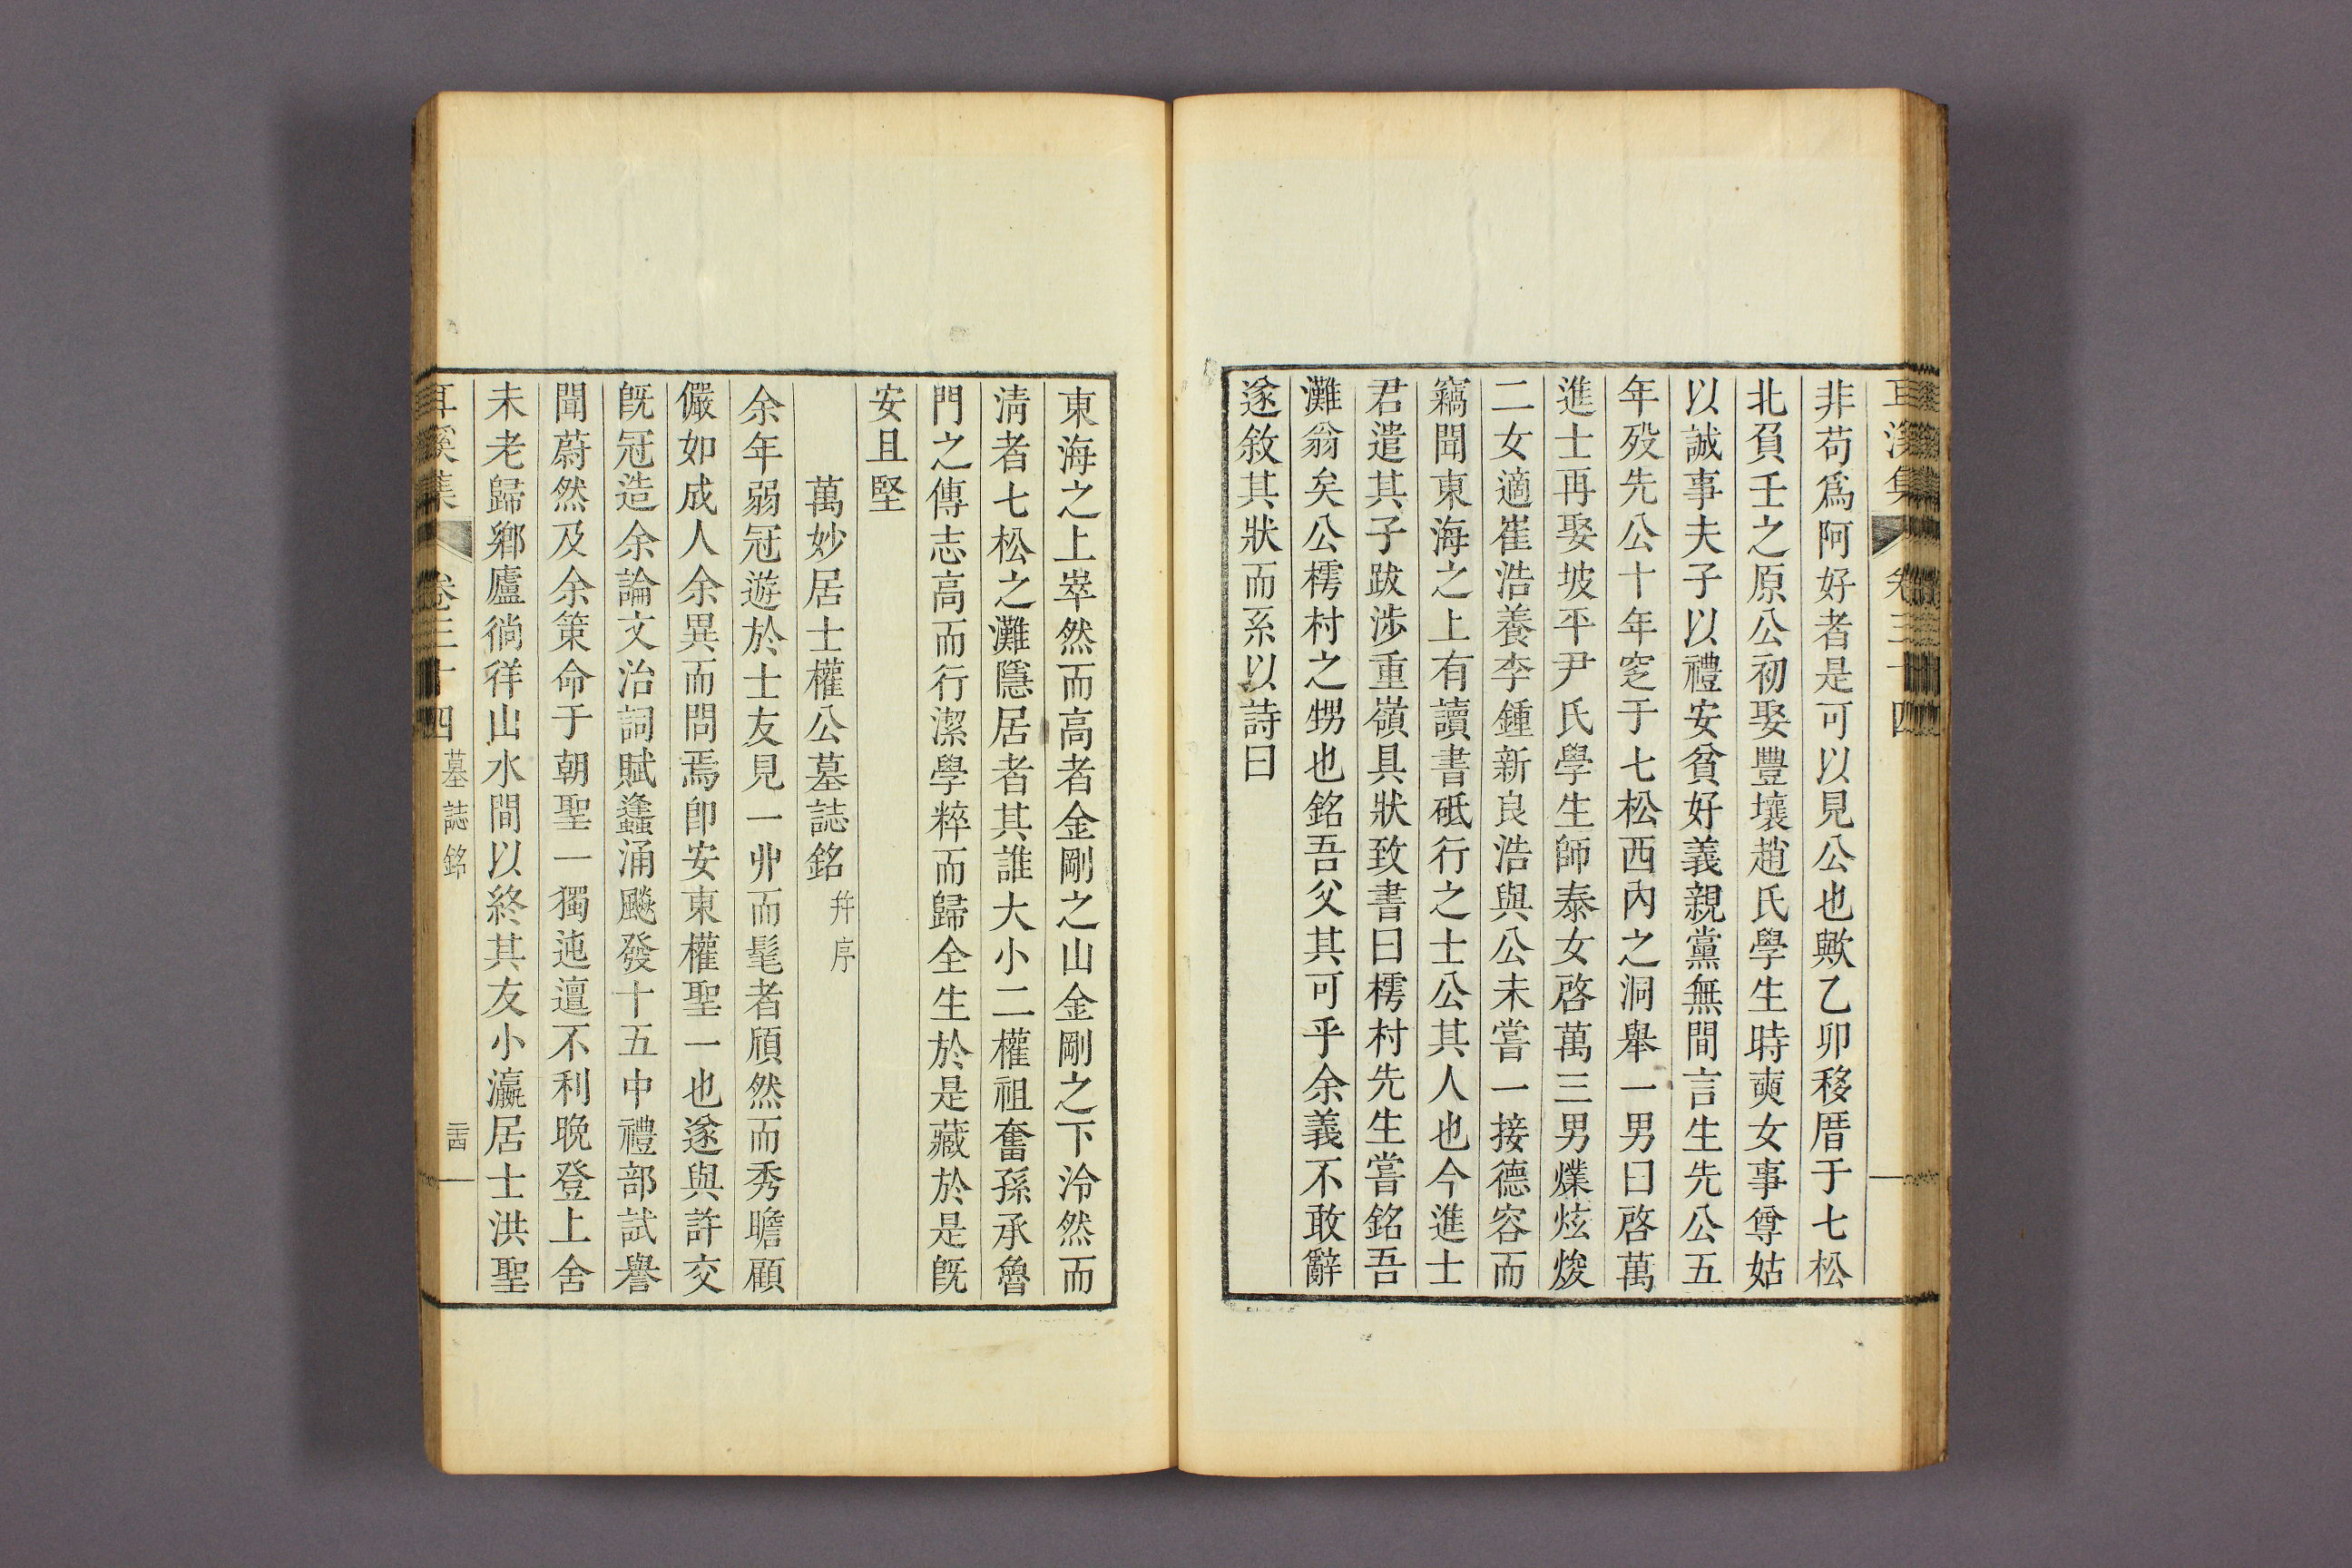 非苟爲阿好者是可以見公也歟乙卯移厝于七松
北負壬之原公初娶豐壤趙氏學生時奭女事尊姑
以誠事夫子以禮安貧好義親黨無間言生先公五
年歿先公十年窆于七松西內之洞舉一男曰啓萬
進士再娶坡平尹氏學生師泰女啓萬三男㸁炫焌
二女適崔浩養李鍾新良浩與公未嘗一接德容而
竊聞東海之上有讀書砥行之士公其人也今進士
君遣其子跋涉重嶺具狀致書曰樗村先生嘗銘吾
灘翁矣公樗村之甥也銘吾父其可乎余義不敢辭
遂敘其狀而系以詩曰
東海之上崒然而高者金剛之山金剛之下泠然而
淸者七松之灘隱居者其誰大小二權祖奮孫承魯
門之傳志高而行潔學粹而歸全生於是藏於是旣
安且堅
萬妙居士權公墓誌銘 幷序
余年弱冠遊於士友見一丱而髦者頎然而秀瞻顧
儼如成人余異而問焉卽安東權聖一也遂與許交
旣冠造余論文治詞賦蠭涌颷發十五中禮部試譽
聞蔚然及余策命于朝聖一獨迍邅不利晩登上舍
未老歸鄉廬徜徉山水間以終其友小瀛居士洪聖
耳溪集 卷三十四 墓誌銘 二十四